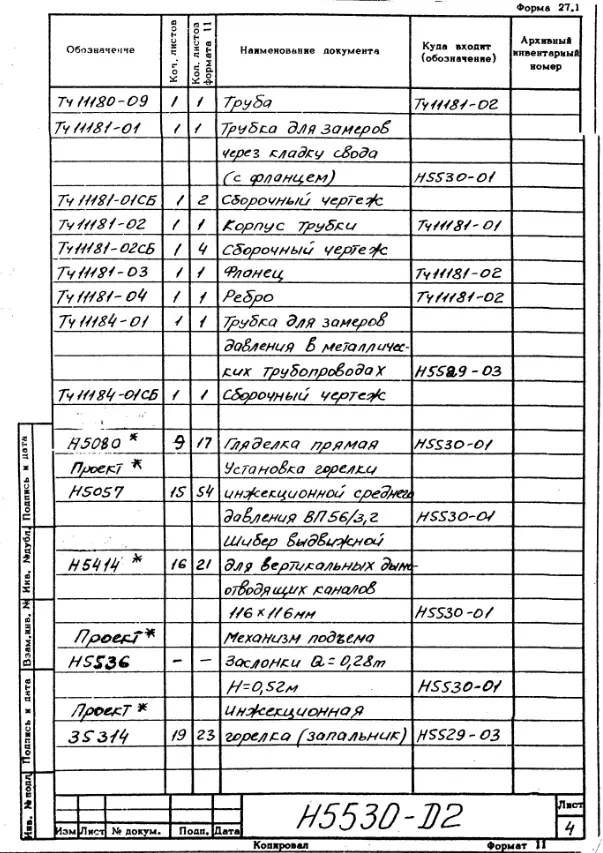 Форма 27.1
Обозначение Кол. листов Кол. листов формата 11 Наименование документа Куда входит (обозначение) Архивный инвентарный номер
Тч 11180-09 1 1 Труба Тч11181-02
Тч 11181-01 1 1 Трубка для замеров
через кладку свода
(с фланцем) Н5530-01
Тч 11181-01СБ 1 2 Сборочный чертеж
Тч11181-02 1 1 Корпус трубки Тч11181-01
Тч11181-02СБ 1 4 Сборочный чертеж
Тч11181-03 1 1 Фланец Тч11181-02
Тч11181-04 1 1 Ребро Тч11181-02
Тч11184-01 1 1 Трубка для замеров
давления в металличес-
ких трубопроводах Н5529-03
Тч11184-01СБ 1 1 Сборочный чертеж
Н5080 * 9 17 Гляделка прямая Н5530-01
Проект * Установка горелки
Н5057 15 54 инжекционной среднего
давления ВП56/3,2 Н5530-01
Шибер выдвижной
Н5414 * 16 21 для вертикальных дымо-
отводящих каналов
116 х 116мм Н5530-01
Проект * Механизм подъема
Н5536 – – Заслонки Q = 0,28т
Н=0,52м Н5530-01
Проект * инжекционная
35314 19 23 горелка (запальник) Н5529-03
Инв. № подл. Подпись и дата Взам.инв. № Инв. №дубл. Подпись и дата
Изм Лист № докум. Подп. Дата
Н5530-D2
Лист
4
Копировал Формат 11